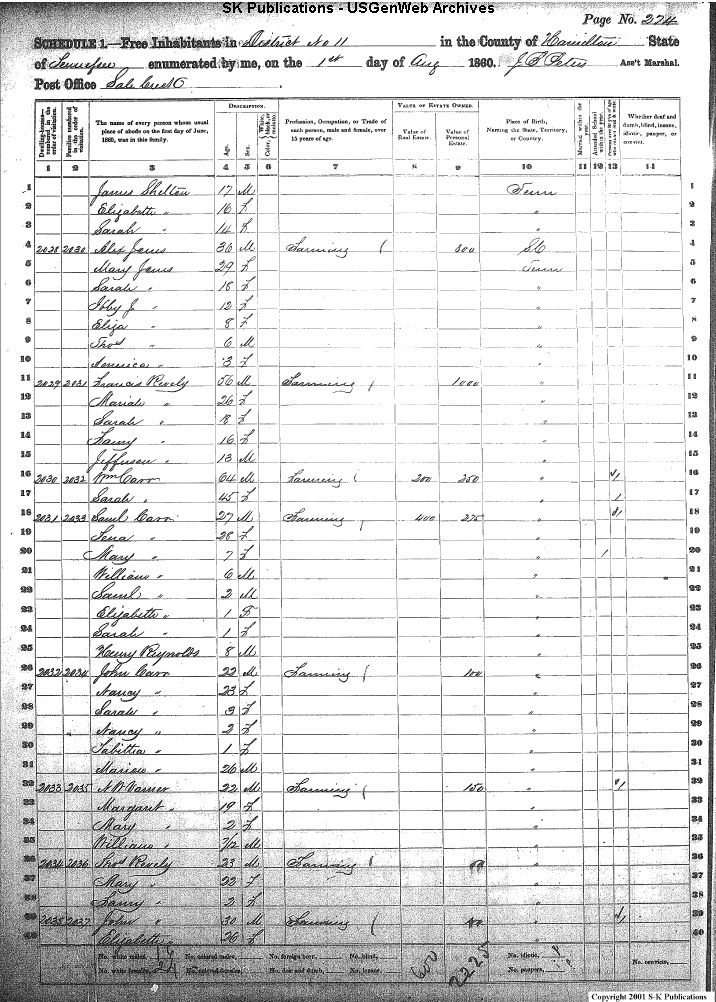 SK Publications - USGenWeb Archives
Page No. 224
SCHEDULE 1.—Free Inhabitants in District No 11 in the County of Hamilton State
of Tennessee enumerated by me, on the 1st day of Aug 1860. Ass't Marshal.
Post Office Sale Creek
Dwelling-houses—numbered in the order of visitation.
Families numbered in the order of visitation.
The name of every person whose usual place of abode on the first day of June, 1860, was in this family.
DESCRIPTION.
Age.
Sex.
Color, White, black, or mulatto.
Profession, Occupation, or Trade of each person, male and female, over 15 years of age.
VALUE OF ESTATE OWNED.
Value of Real Estate.
Value of Personal Estate.
Place of Birth, Naming the State, Territory, or Country.
Married within the year.
Attended School within the year.
Whether deaf and dumb, blind, insane, idiotic, pauper, or convict.
1 2 3 4 5 6 7 8 9 10 11 12 13 14
1 James Shelton 17 M Tenn 1
2 Elizabeth " 16 F " 2
3 Sarah " 14 F " 3
4 2028 2030 Alex Jones 36 M Farming 300 SC 4
5 Mary Jones 29 F Tenn 5
6 Sarah " 18 F " 6
7 J " 12 F " 7
8 Eliza " 8 F " 8
9 Thos " 6 M " 9
10 America " 3 F " 10
11 2029 2031 Francis Rively 56 M Farming 1000 " 11
12 Mariah " 26 F " 12
13 Sarah " 18 F " 13
14 Fanny " 16 F " 14
15 Jefferson " 13 M " 15
16 2030 2032 Wm Carr 64 M Farming 200 250 " 16
17 Sarah " 45 F " 1 17
18 2031 2033 Saml Carr 27 M Farming 400 275 " 18
19 Lena " 28 F " 19
20 Mary " 7 F " / 20
21 William " 6 M " 21
22 Saml " 2 M " 22
23 Elizabeth " 1 F " 23
24 Sarah " 1 F " 24
25 Henry Reynolds 8 M " 25
26 2032 2034 John Carr 22 M Farming 100 " 26
27 Nancy " 23 F " 27
28 Sarah " 3 F " 28
29 Nancy " 2 F " 29
30 Tabitha " 1 F " 30
31 Marion " 26 M " 31
32 2033 2035 N W Varner 22 M Farming 150 " 32
33 Margaret " 19 F " 33
34 Mary " 2 F " 34
35 William " 7/12 M " 35
36 2034 2036 Thos Rively 23 M Farming " 36
37 Mary " 22 F " 37
38 Fanny " 2 F " 38
39 2035 2037 John " 30 M Farming " 39
40 Elizabeth " 26 F " 40
No. white males, No. colored males, No. foreign born, No. blind, No. idiotic,
No. white females, No. colored females, No. deaf and dumb, No. insane, 600 2225 No. paupers, No. convicts,
Copyright 2001 S-K Publications